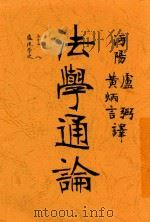 沔陽 盧弼
黃炳言 譯
法學通論